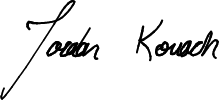 Jordan Kovach